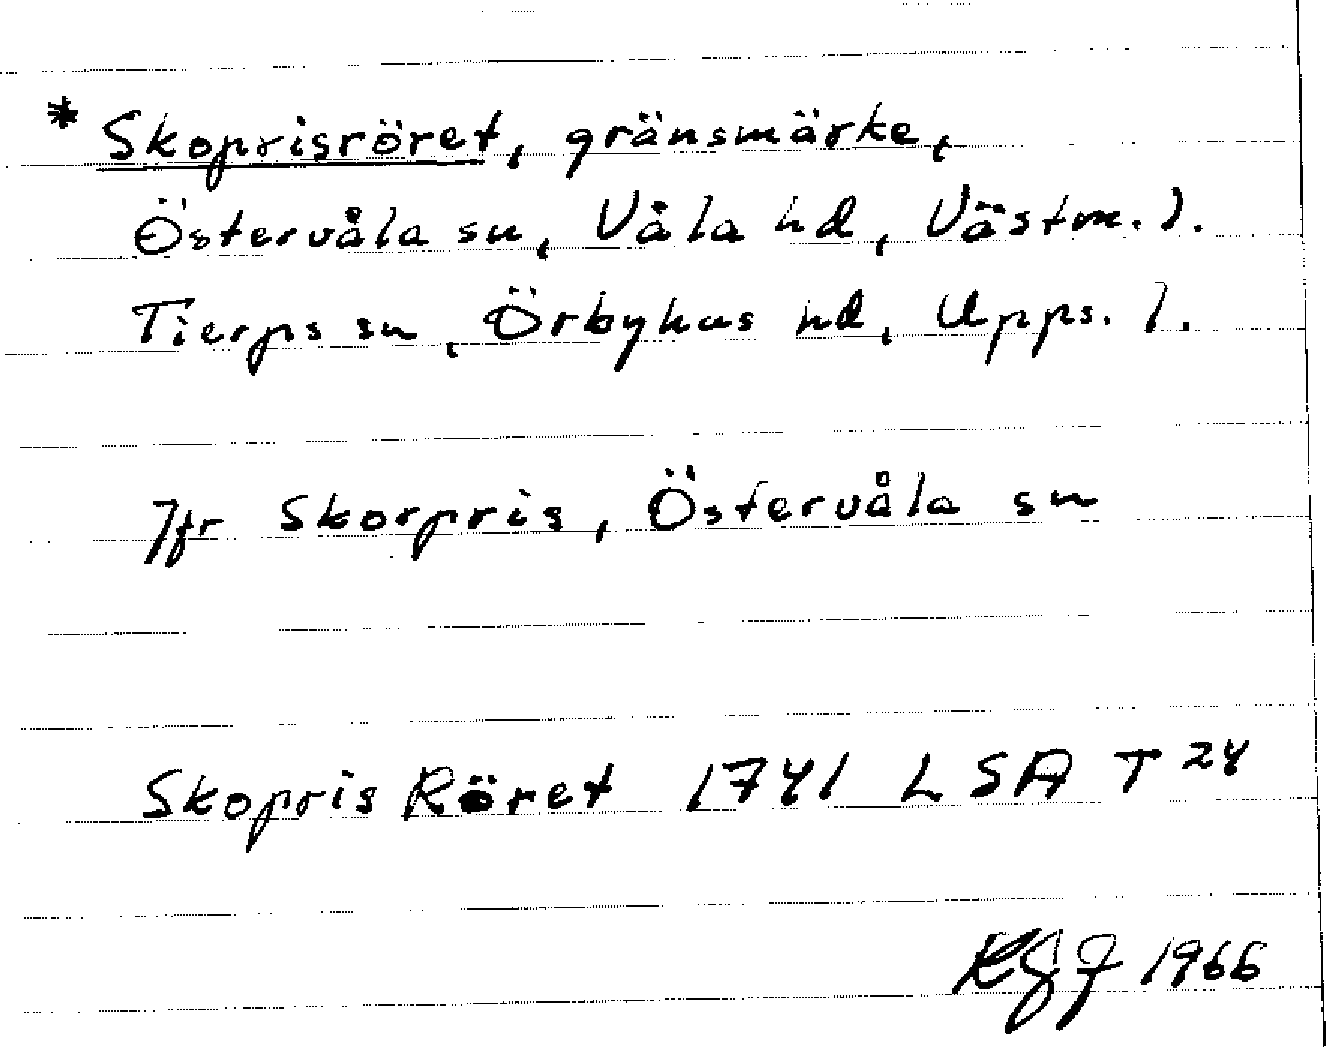 * Skoprisröret, gränsmärke,
Östervåla sn, Våla hd, Västm. l.
Tierps sn, Örbyhus hd, Upps. l.
Jfr Skorpris, Östervåla sn
Skopris Röret 1741 LSA T 24
1966